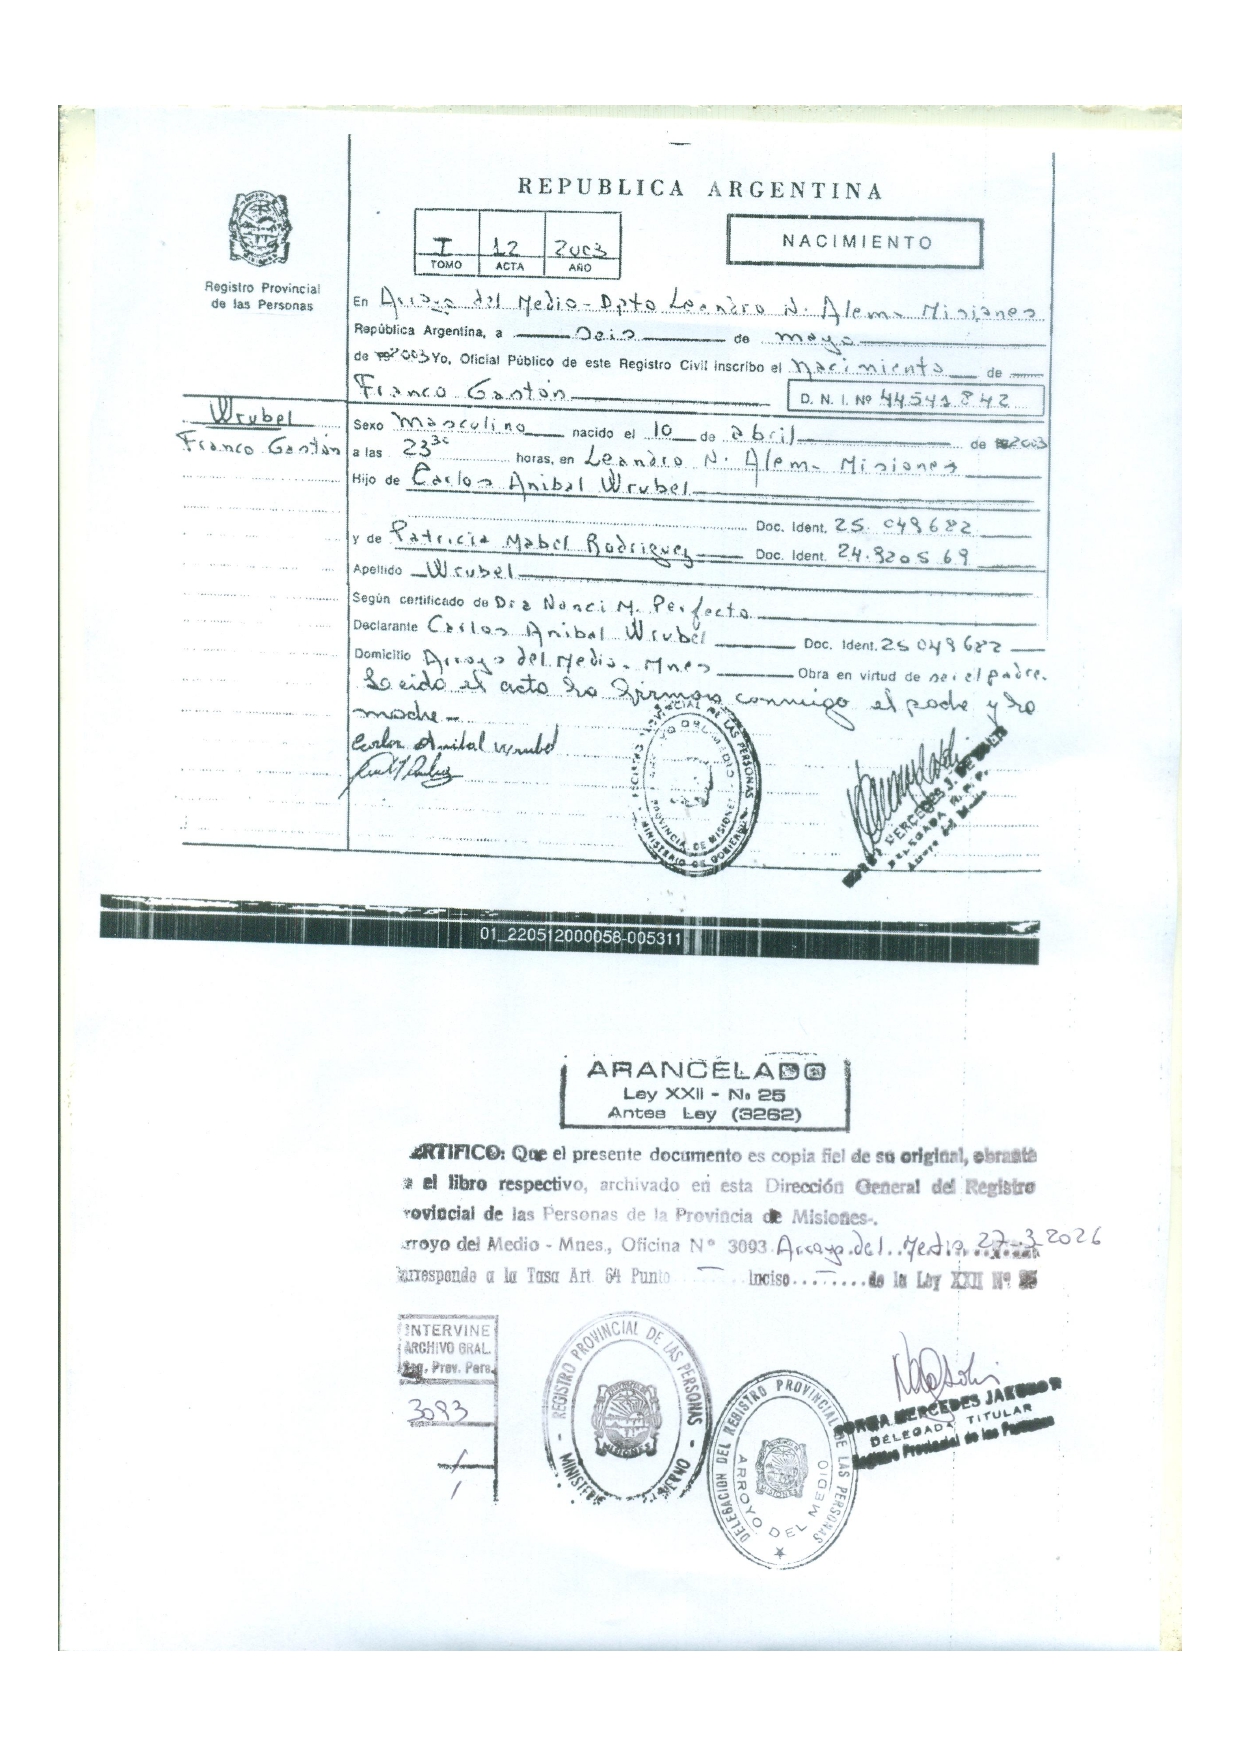 REPUBLICA ARGENTINA
I 12 2003
TOMO ACTA AÑO
NACIMIENTO
Registro Provincial
de las Personas
En Arroyo del Medio - Dpto Leandro N. Alem - Misiones
República Argentina, a Seis de mayo
de 2003 Yo, Oficial Público de este Registro Civil inscribo el Nacimiento de
Franco Gastón
D. N. I. Nº 44541842
Wrubel
Franco Gastón
Sexo Masculino nacido el 10 de abril de 2003
a las 23 30 horas, en Leandro N. Alem - Misiones
Hijo de Carlos Anibal Wrubel
Doc. Ident. 25.049682
y de Patricia Mabel Rodriguez Doc. Ident. 24.920569
Apellido Wrubel
Según certificado de Dra Nanci M. Perfecto
Declarante Carlos Anibal Wrubel Doc. Ident. 25049682
Domicilio Arroyo del Medio - Mnes Obra en virtud de ser el padre.
Leida el acta la firman conmigo el padre y la
madre -
Carlos Anibal Wrubel
REGISTRO PROVINCIAL DE LAS PERSONAS
ARROYO DEL MEDIO
PROVINCIA DE MISIONES
MINISTERIO DE GOBIERNO
MERCEDES J. DE
DELEGADA R. P. P.
Arroyo del Medio
01_220512000058-005311
ARANCELADO
Ley XXII - Nº 25
Antes Ley (3262)
ERTIFICO: Que el presente documento es copia fiel de su original, obrante
el libro respectivo, archivado en esta Dirección General del Registro
rovincial de las Personas de la Provincia de Misiones-.
rroyo del Medio - Mnes., Oficina Nº 3093 Arroyo del Medio 27-3-2026
orresponde a la Tasa Art. 64 Punto — Inciso — de la Ley XXII Nº 25
INTERVINE
ARCHIVO GRAL.
Reg. Prov. Pers.
3093
REGISTRO PROVINCIAL DE LAS PERSONAS
MISIONES
DELEGACION DEL REGISTRO PROVINCIAL DE LAS PERSONAS
MISIONES
ARROYO DEL MEDIO
NORMA MERCEDES
DELEGADA TITULAR
Registro Provincial de las Personas